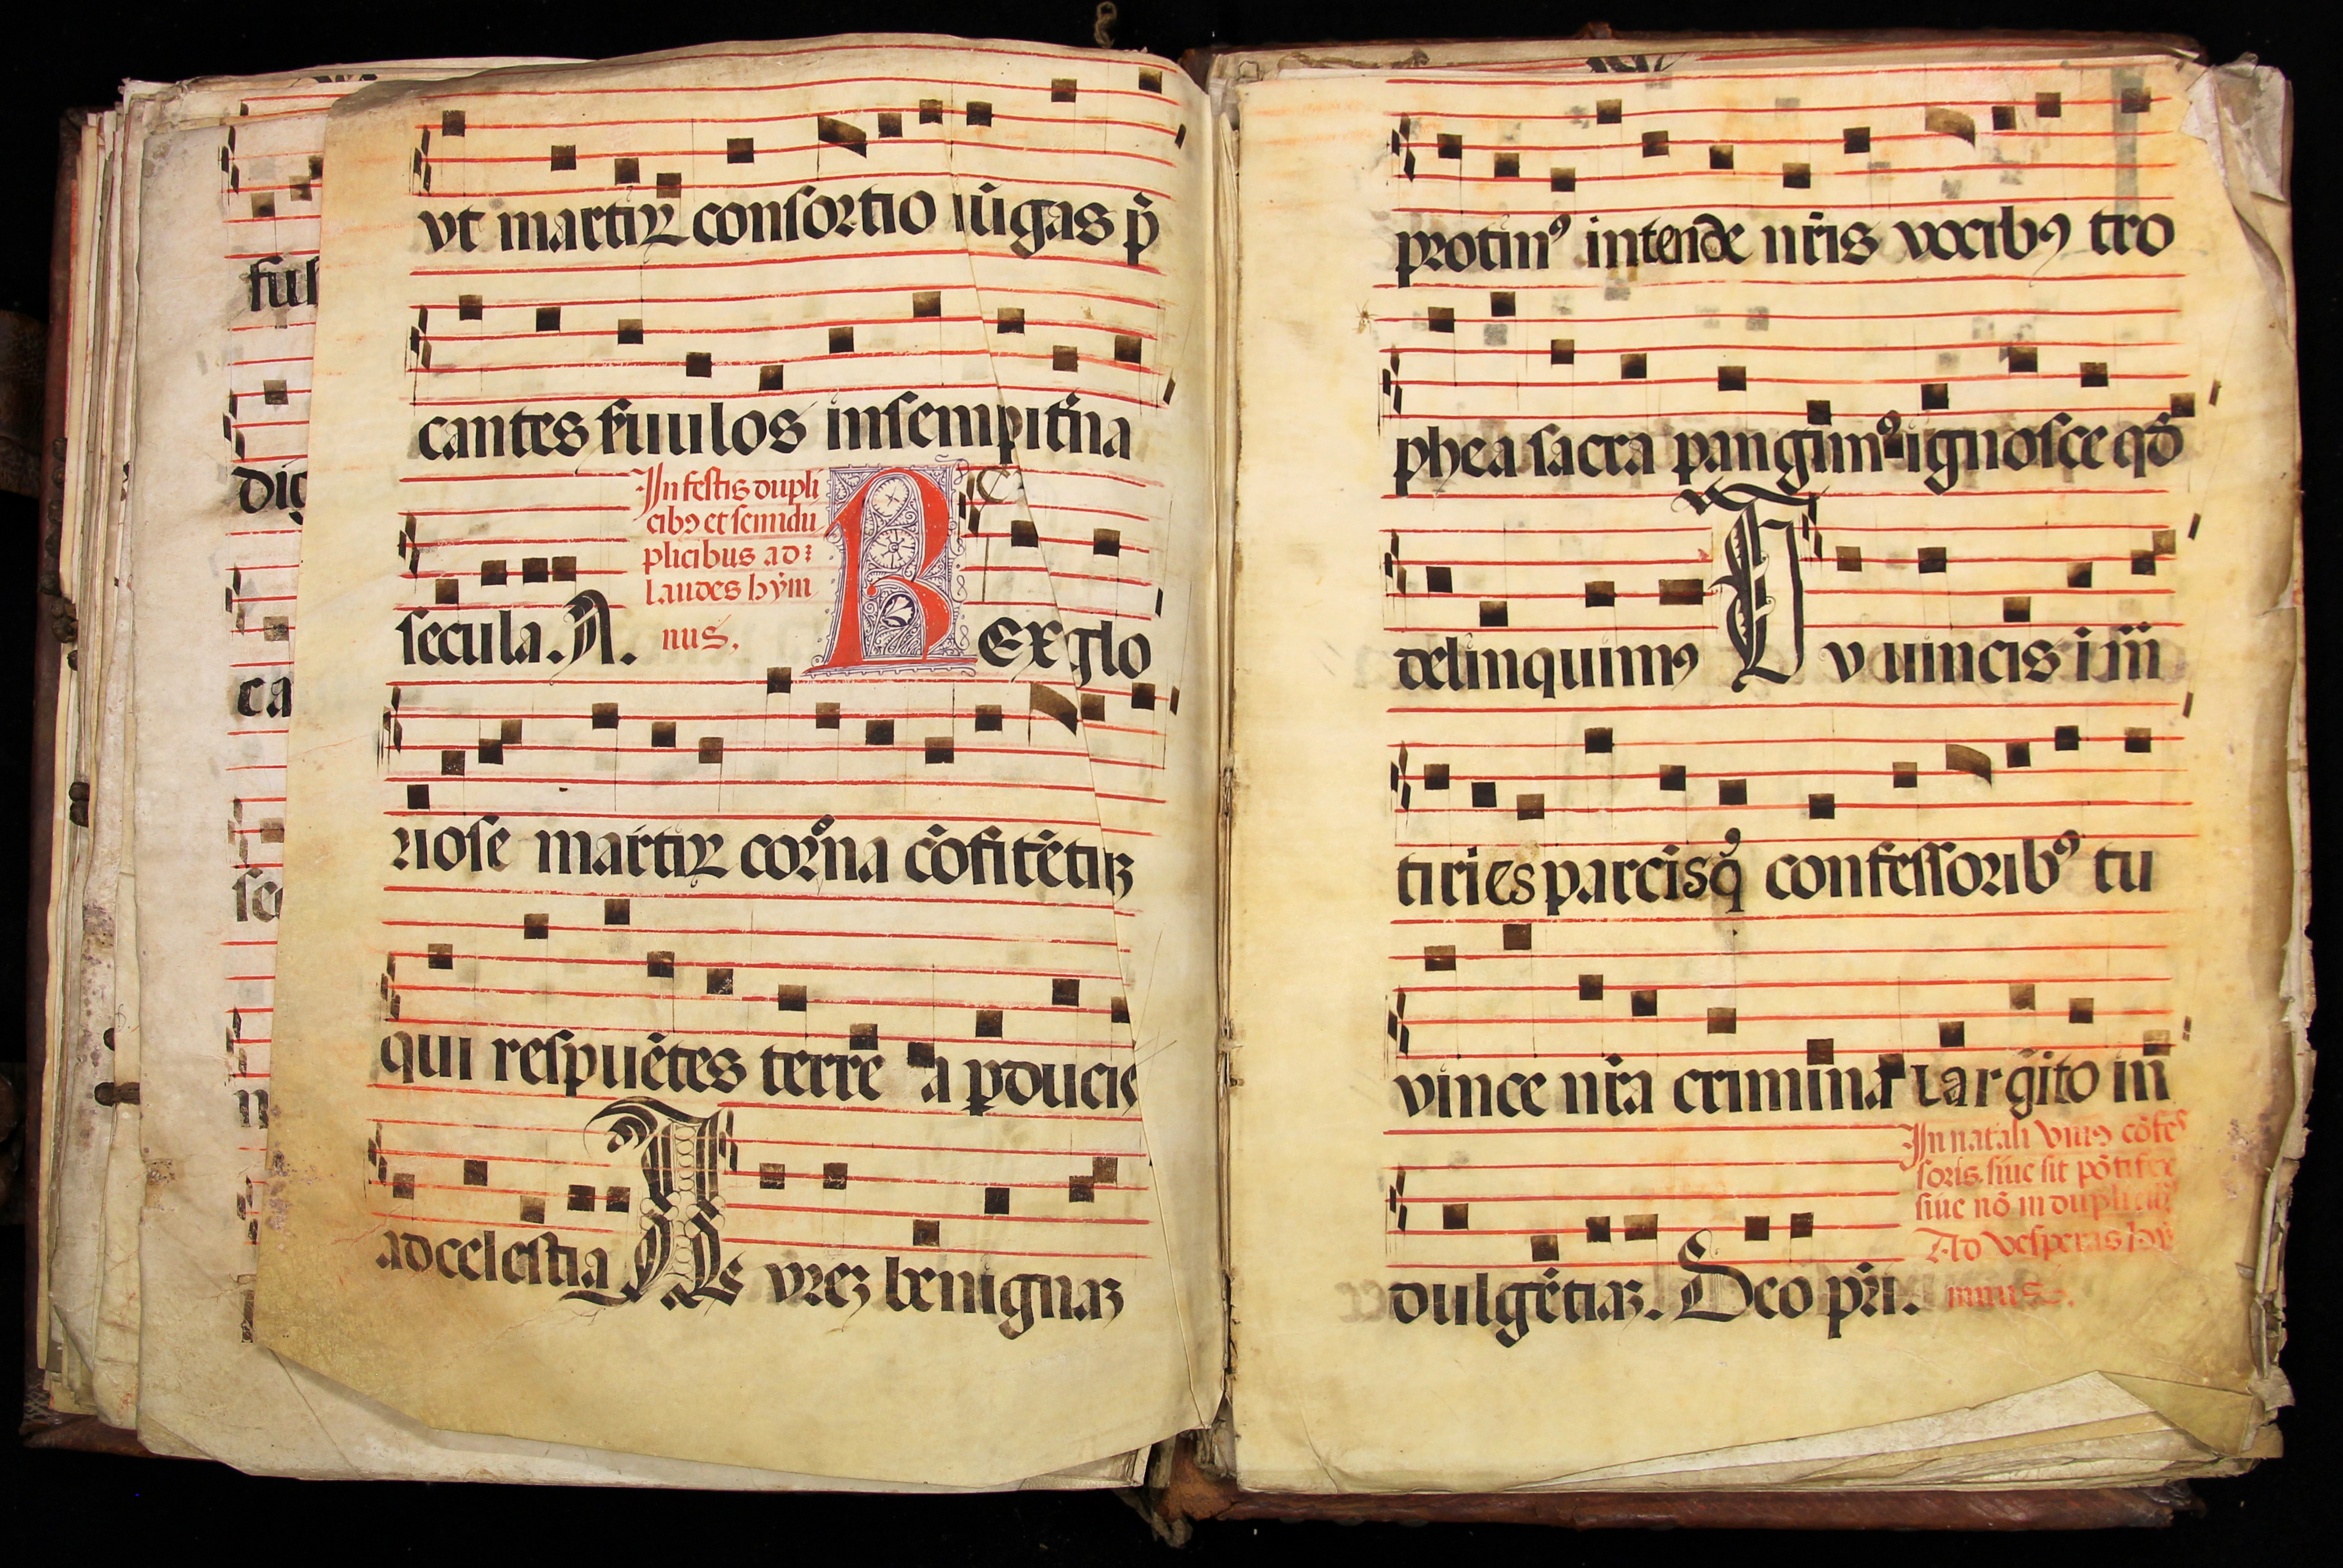 ful
dig
ca
se
vt martiꝝ consortio iūgas p̄
cantes fuulos insempit̄na
In festis dupli
cibꝯ et semidu
plicibus ad
laudes hym
nus.
secula. A.
Rex glo
riose martiꝝ cor̄na cōfitētiuꝫ
qui respuētes terrē a ꝑducis
ad celestia Au
rēꝫ benignaꝫ
protinꝰ intende nr̄is vocibꝯ tro
phea sacra pangimꝰ ignosce qđ
delinquimꝯ Tu vincis i m̄
tiries parcisqꝫ confessoribꝰ tu
vince nr̄a crimina largito in
In natali vniꝯ cōfes
soris. siue sit pōtifex
siue nō in duplicibꝰ
Ad vesperas hy
mnus.
dulgētiaꝫ. Deo pr̄i.